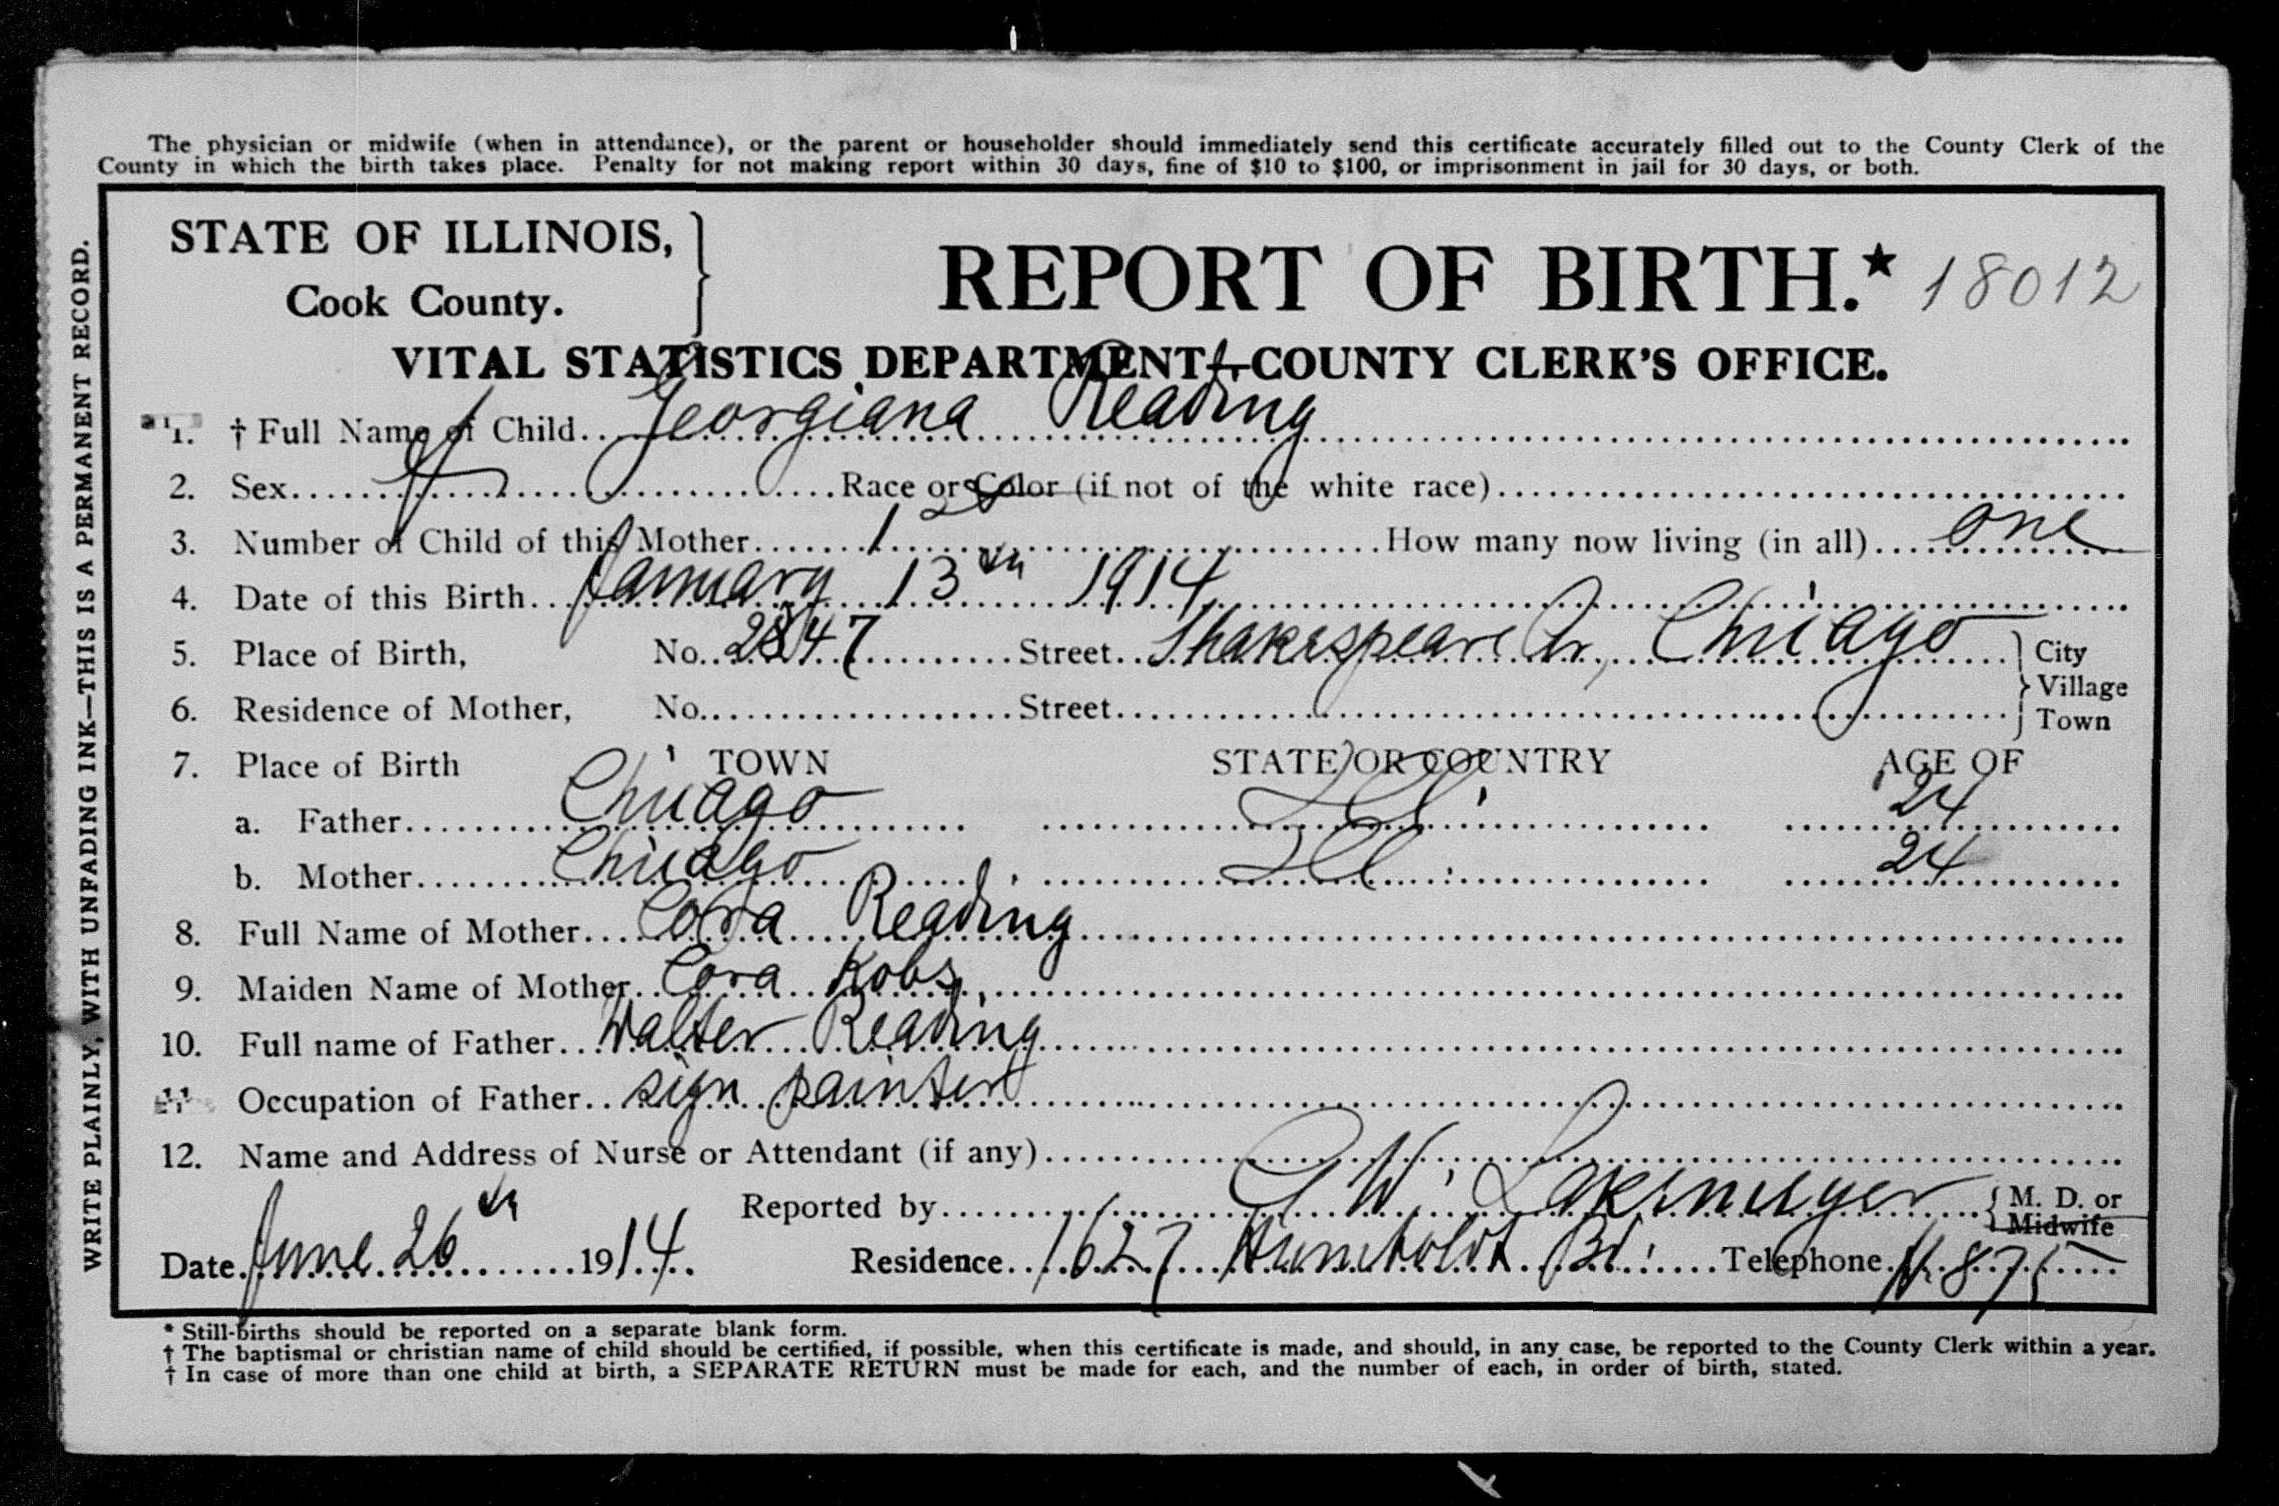 The physician or midwife (when in attendance), or the parent or householder should immediately send this certificate accurately filled out to the County Clerk of the
County in which the birth takes place. Penalty for not making report within 30 days, fine of $10 to $100, or imprisonment in jail for 30 days, or both.
WRITE PLAINLY, WITH UNFADING INK—THIS IS A PERMANENT RECORD.
STATE OF ILLINOIS,
Cook County.
REPORT OF BIRTH.* 18012
VITAL STATISTICS DEPARTMENT—COUNTY CLERK'S OFFICE.
1. † Full Name of Child Georgiana Reading
2. Sex f Race or Color (if not of the white race)
3. Number of Child of this Mother 1 How many now living (in all) one
4. Date of this Birth January 13th 1914
5. Place of Birth, No. 2847 Street Shakespeare Av, Chicago City
Village
6. Residence of Mother, No. Street Town
7. Place of Birth TOWN STATE OR COUNTRY AGE OF
a. Father Chicago Ill. 24
b. Mother Chicago Ill. 24
8. Full Name of Mother Cora Reading
9. Maiden Name of Mother Cora Kobs
10. Full name of Father Walter Reading
11. Occupation of Father sign painter
12. Name and Address of Nurse or Attendant (if any)
Reported by W. Lakemeyer M. D. or
Midwife
Date June 26th 1914. Residence 1627 Humboldt Bd. Telephone H. 875
* Still-births should be reported on a separate blank form.
† The baptismal or christian name of child should be certified, if possible, when this certificate is made, and should, in any case, be reported to the County Clerk within a year.
† In case of more than one child at birth, a SEPARATE RETURN must be made for each, and the number of each, in order of birth, stated.